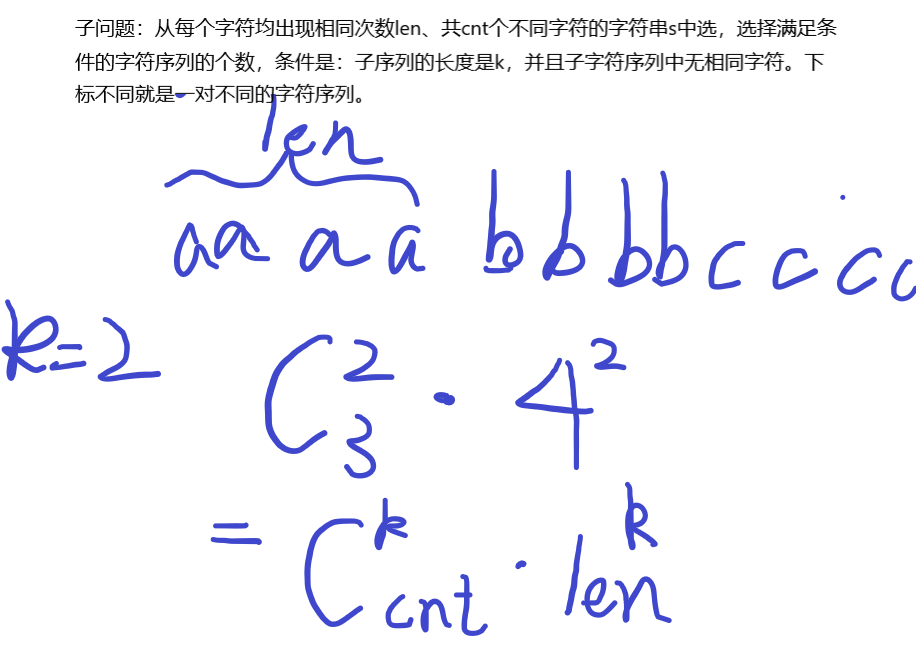 子问题：从每个字符均出现相同次数len、共cnt个不同字符的字符串s中选，选择满足条
件的字符序列的个数，条件是：子序列的长度是k，并且子字符序列中无相同字符。下
标不同就是一对不同的字符序列。
len
aa a a b b bb c c c c
k=2
C₃² · 4²
= C_cnt^k · len^k